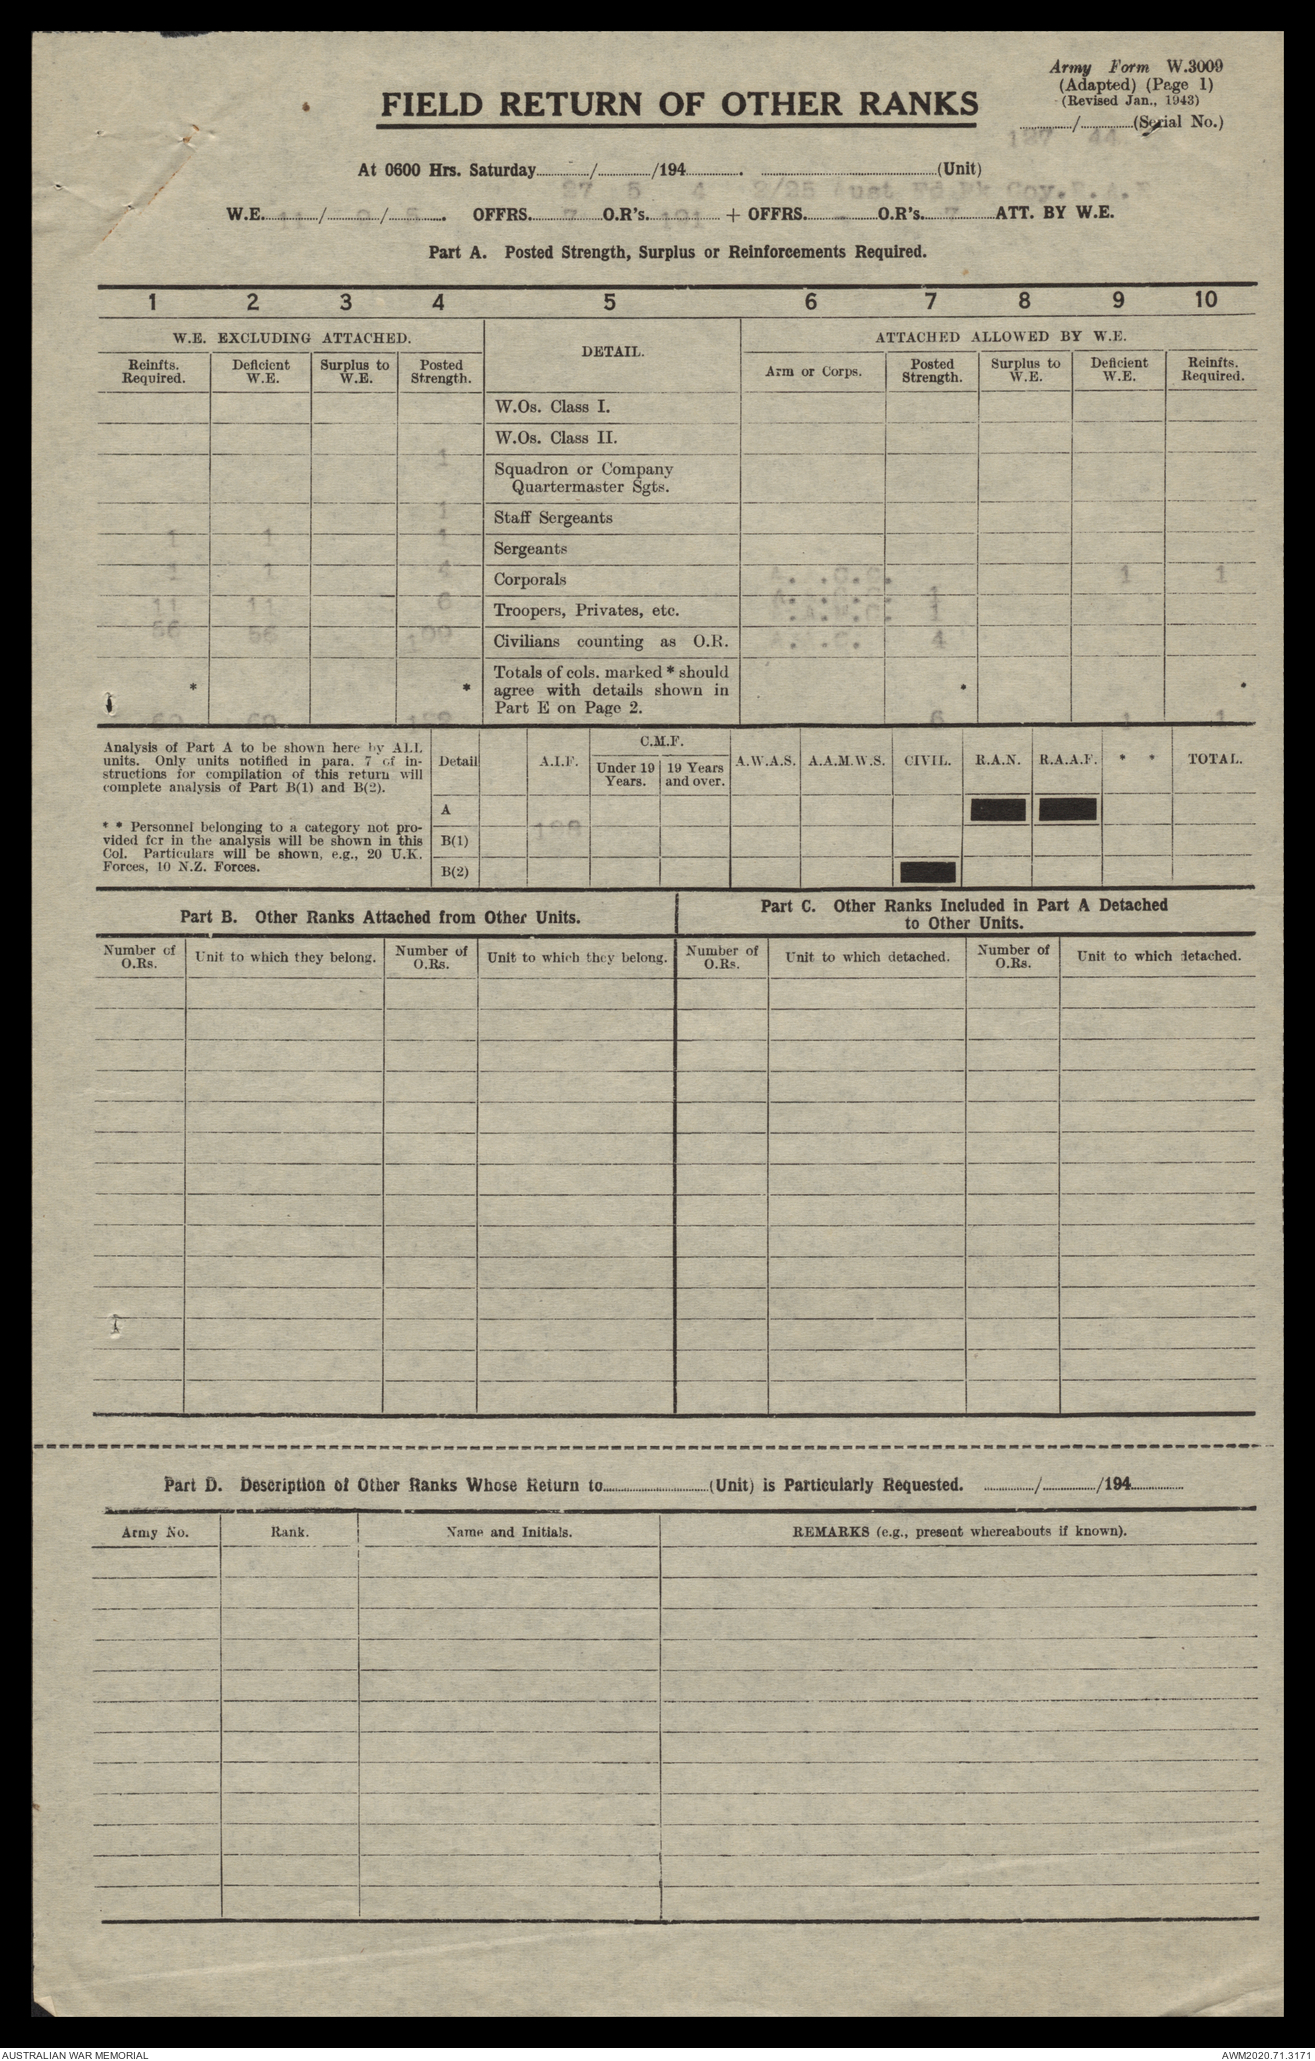 Army Form W.3009
(Adapted) (Page 1)
(Revised Jan., 1943)
FIELD RETURN OF OTHER RANKS
............/............(Serial No.)
127 44
At 0600 Hrs. Saturday............/............/194............. ............(Unit)
27 5 4 2/25 Aust Fd Pk Coy.R.A.E
W.E. 11 / / 5. OFFRS. 7 O.R's. 191 + OFFRS. - O.R's. 7 ATT. BY W.E.
Part A. Posted Strength, Surplus or Reinforcements Required.
1 2 3 4 5 6 7 8 9 10
W.E. EXCLUDING ATTACHED. DETAIL. ATTACHED ALLOWED BY W.E.
Reinfts. Required. Deficient W.E. Surplus to W.E. Posted Strength. Arm or Corps. Posted Strength. Surplus to W.E. Deficient W.E. Reinfts. Required.
W.Os. Class I.
W.Os. Class II.
1
Squadron or Company
Quartermaster Sgts.
1
Staff Sergeants
1 1 1
Sergeants
1 1 4
Corporals 1 1
11 11 6 1
Troopers, Privates, etc. A.A.M.C. 1
56 56
Civilians counting as O.R. 4
Totals of cols. marked * should
* * agree with details shown in * *
Part E on Page 2.
69 69 6 1 1
Analysis of Part A to be shown here by ALL
units. Only units notified in para. 7 of in-
structions for compilation of this return will
complete analysis of Part B(1) and B(2).
* * Personnel belonging to a category not pro-
vided for in the analysis will be shown in this
Col. Particulars will be shown, e.g., 20 U.K.
Forces, 10 N.Z. Forces.
Detail A.I.F. C.M.F. A.W.A.S. A.A.M.W.S. CIVIL. R.A.N. R.A.A.F. * * TOTAL.
Under 19 Years. 19 Years and over.
A
B(1)
B(2)
Part B. Other Ranks Attached from Other Units.
Part C. Other Ranks Included in Part A Detached
to Other Units.
Number of O.Rs. Unit to which they belong. Number of O.Rs. Unit to which they belong. Number of O.Rs. Unit to which detached. Number of O.Rs. Unit to which detached.
Part D. Description of Other Ranks Whose Return to............(Unit) is Particularly Requested. ............/............/194............
Army No. Rank. Name and Initials. REMARKS (e.g., present whereabouts if known).
AUSTRALIAN WAR MEMORIAL
AWM2020.71.3171